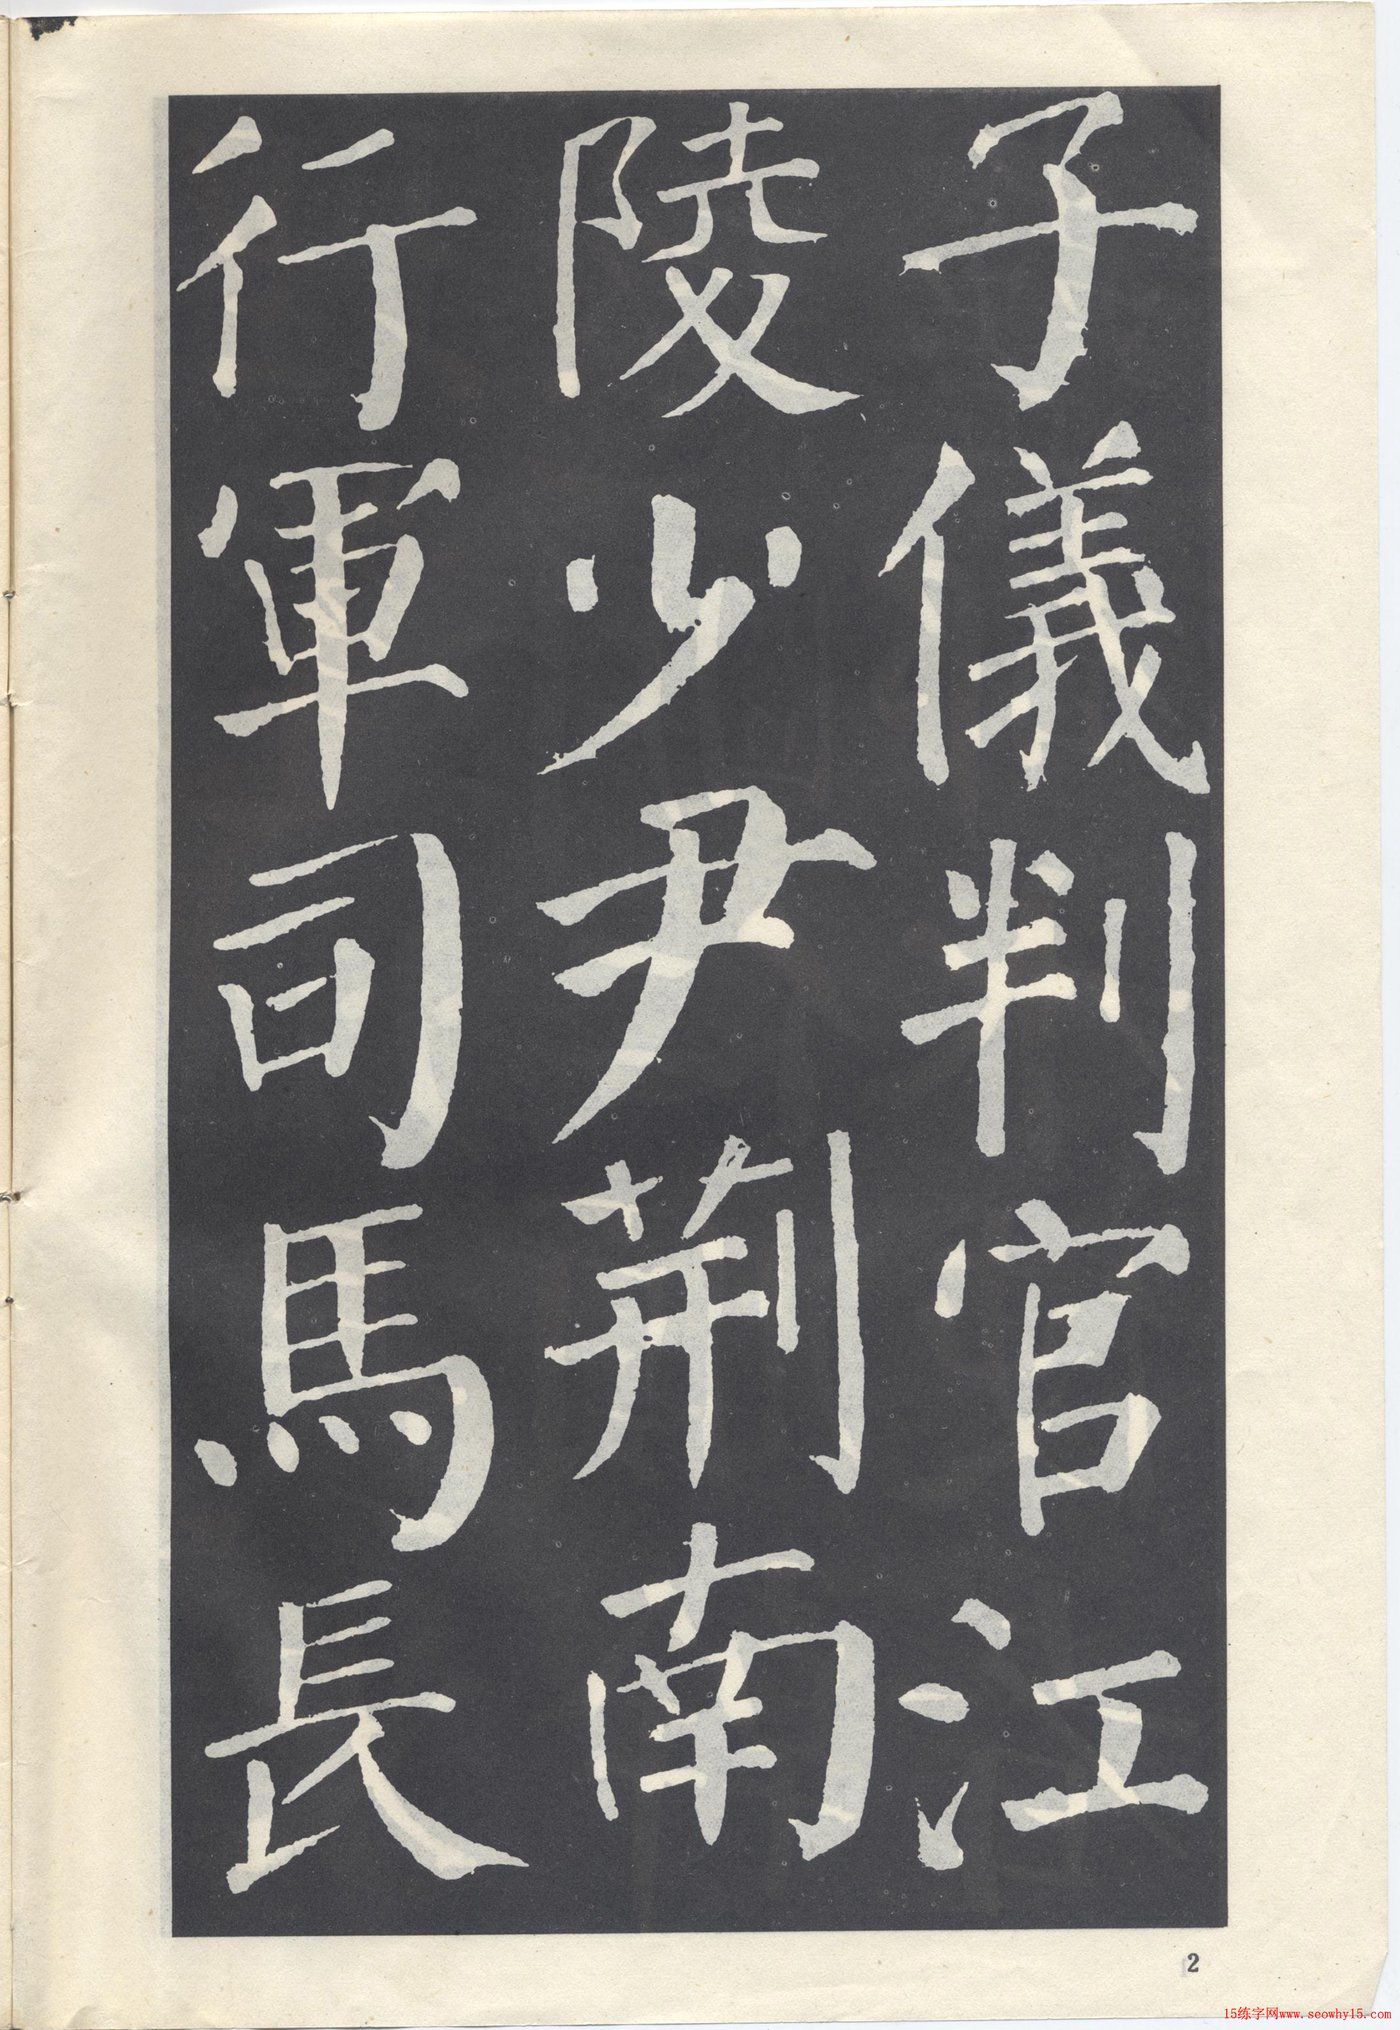 子儀判官江
陵少尹荊南
行軍司馬長
2
15练字网www.seowhy15.com